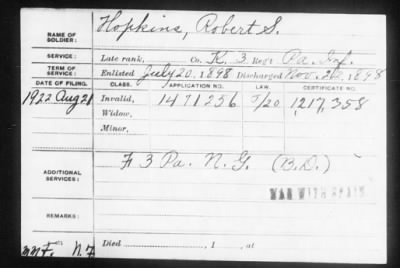 NAME OF SOLDIER: Hopkins, Robert S.
SERVICE: Late rank, Co. K. 3 Reg't Pa. Inf.
TERM OF SERVICE: Enlisted July 20, 1898 Discharged Nov. 1898
DATE OF FILING. CLASS. APPLICATION NO. LAW. CERTIFICATE NO.
1922 Aug 21 Invalid, 1471256 5/20 1217,358
Widow,
Minor,
ADDITIONAL SERVICES: 3 Pa. N. G. (B.D.)
WAR WITH SPAIN
REMARKS:
Died , 1 , at